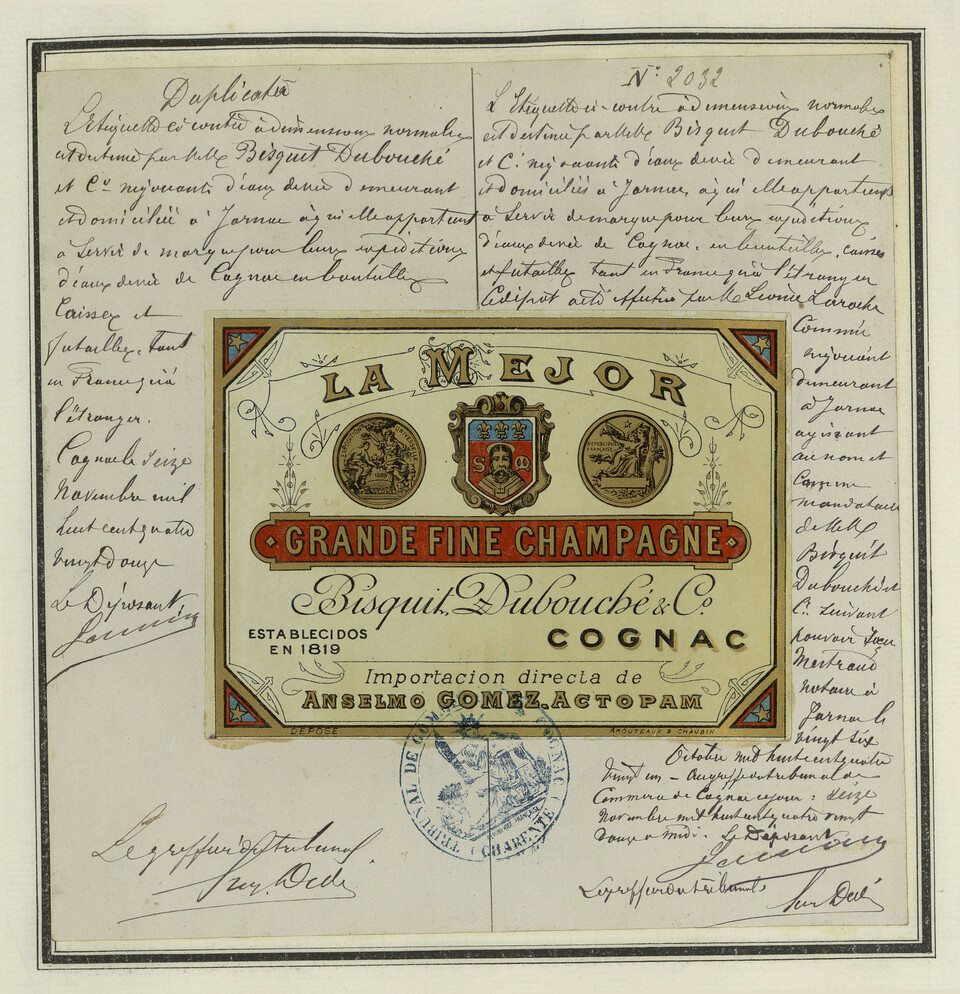 Duplicata
L'étiquette ci-contre à dimensions normales
est destinée par MM. Bisquit Dubouché
et Cie négociants d'eaux de vie demeurant
et domiciliés à Jarnac à qui elle appartient
à servir de marque pour leurs expéditions
d'eaux de vie de Cognac en bouteilles
Caisses et
futailles, tant
en France qu'à
l'étranger.
Cognac le Seize
Novembre mil
huit cent quatre
vingt douze
Le Déposant
N° 2032
L'Etiquette ci-contre à dimensions normales
est destinée par MM. Bisquit Dubouché
et Cie négociants d'eaux de vie demeurant
et domiciliés à Jarnac, à qui elle appartient
à servir de marque pour leurs expéditions
d'eaux de vie de Cognac, en bouteilles, caisses
et futailles tant en France qu'à l'étranger
Ce dépôt a été effectué par M. Laroche
Commis
négociant
demeurant
à Jarnac
agissant
au nom et
Comme
mandataire
de MM.
Bisquit
Dubouché et
Cie suivant
pouvoir
notaire à
Jarnac le
vingt six
Octobre mil huit cent quatre
vingt un - Au greffe du tribunal de
Commerce de Cognac ce jour : seize
Novembre mil huit cent quatre vingt
douze à midi. Le Déposant
Le greffier du tribunal
Le greffier du tribunal
LA MEJOR
RÉPUBLIQUE FRANÇAISE
S
GRANDE FINE CHAMPAGNE
Bisquit, Dubouché & Co
ESTABLECIDOS
EN 1819
COGNAC
Importacion directa de
ANSELMO GOMEZ. ACTOPAM
DÉPOSÉ
TRIBUNAL DE COMMERCE COGNAC (CHARENTE)